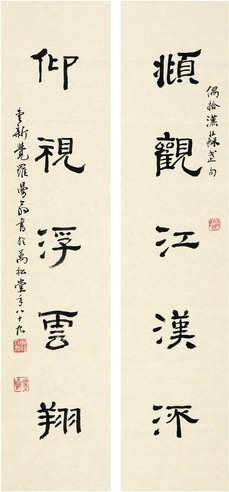 頫觀江漢流
偶拾漢蘇武句
仰視浮雲翔
愛新覺羅 書於萬松堂年八十九